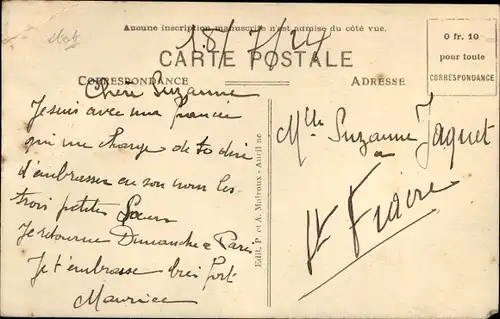 Aucune inscription manuscrite n'est admise du côté vue.
18/7/24
CARTE POSTALE
CORRESPONDANCE
ADRESSE
0 fr. 10
pour toute
CORRESPONDANCE
Chère Suzanne
Je suis avec ma fiancée
qui me charge de te dire
d'embrasser en son nom les
trois petites Sœurs
Je retourne Dimanche a Paris
Je t'embrasse bien fort
Maurice
Edit. P. et A. Malroux - Aurillac
Mlle Suzanne Jaquet
a
St